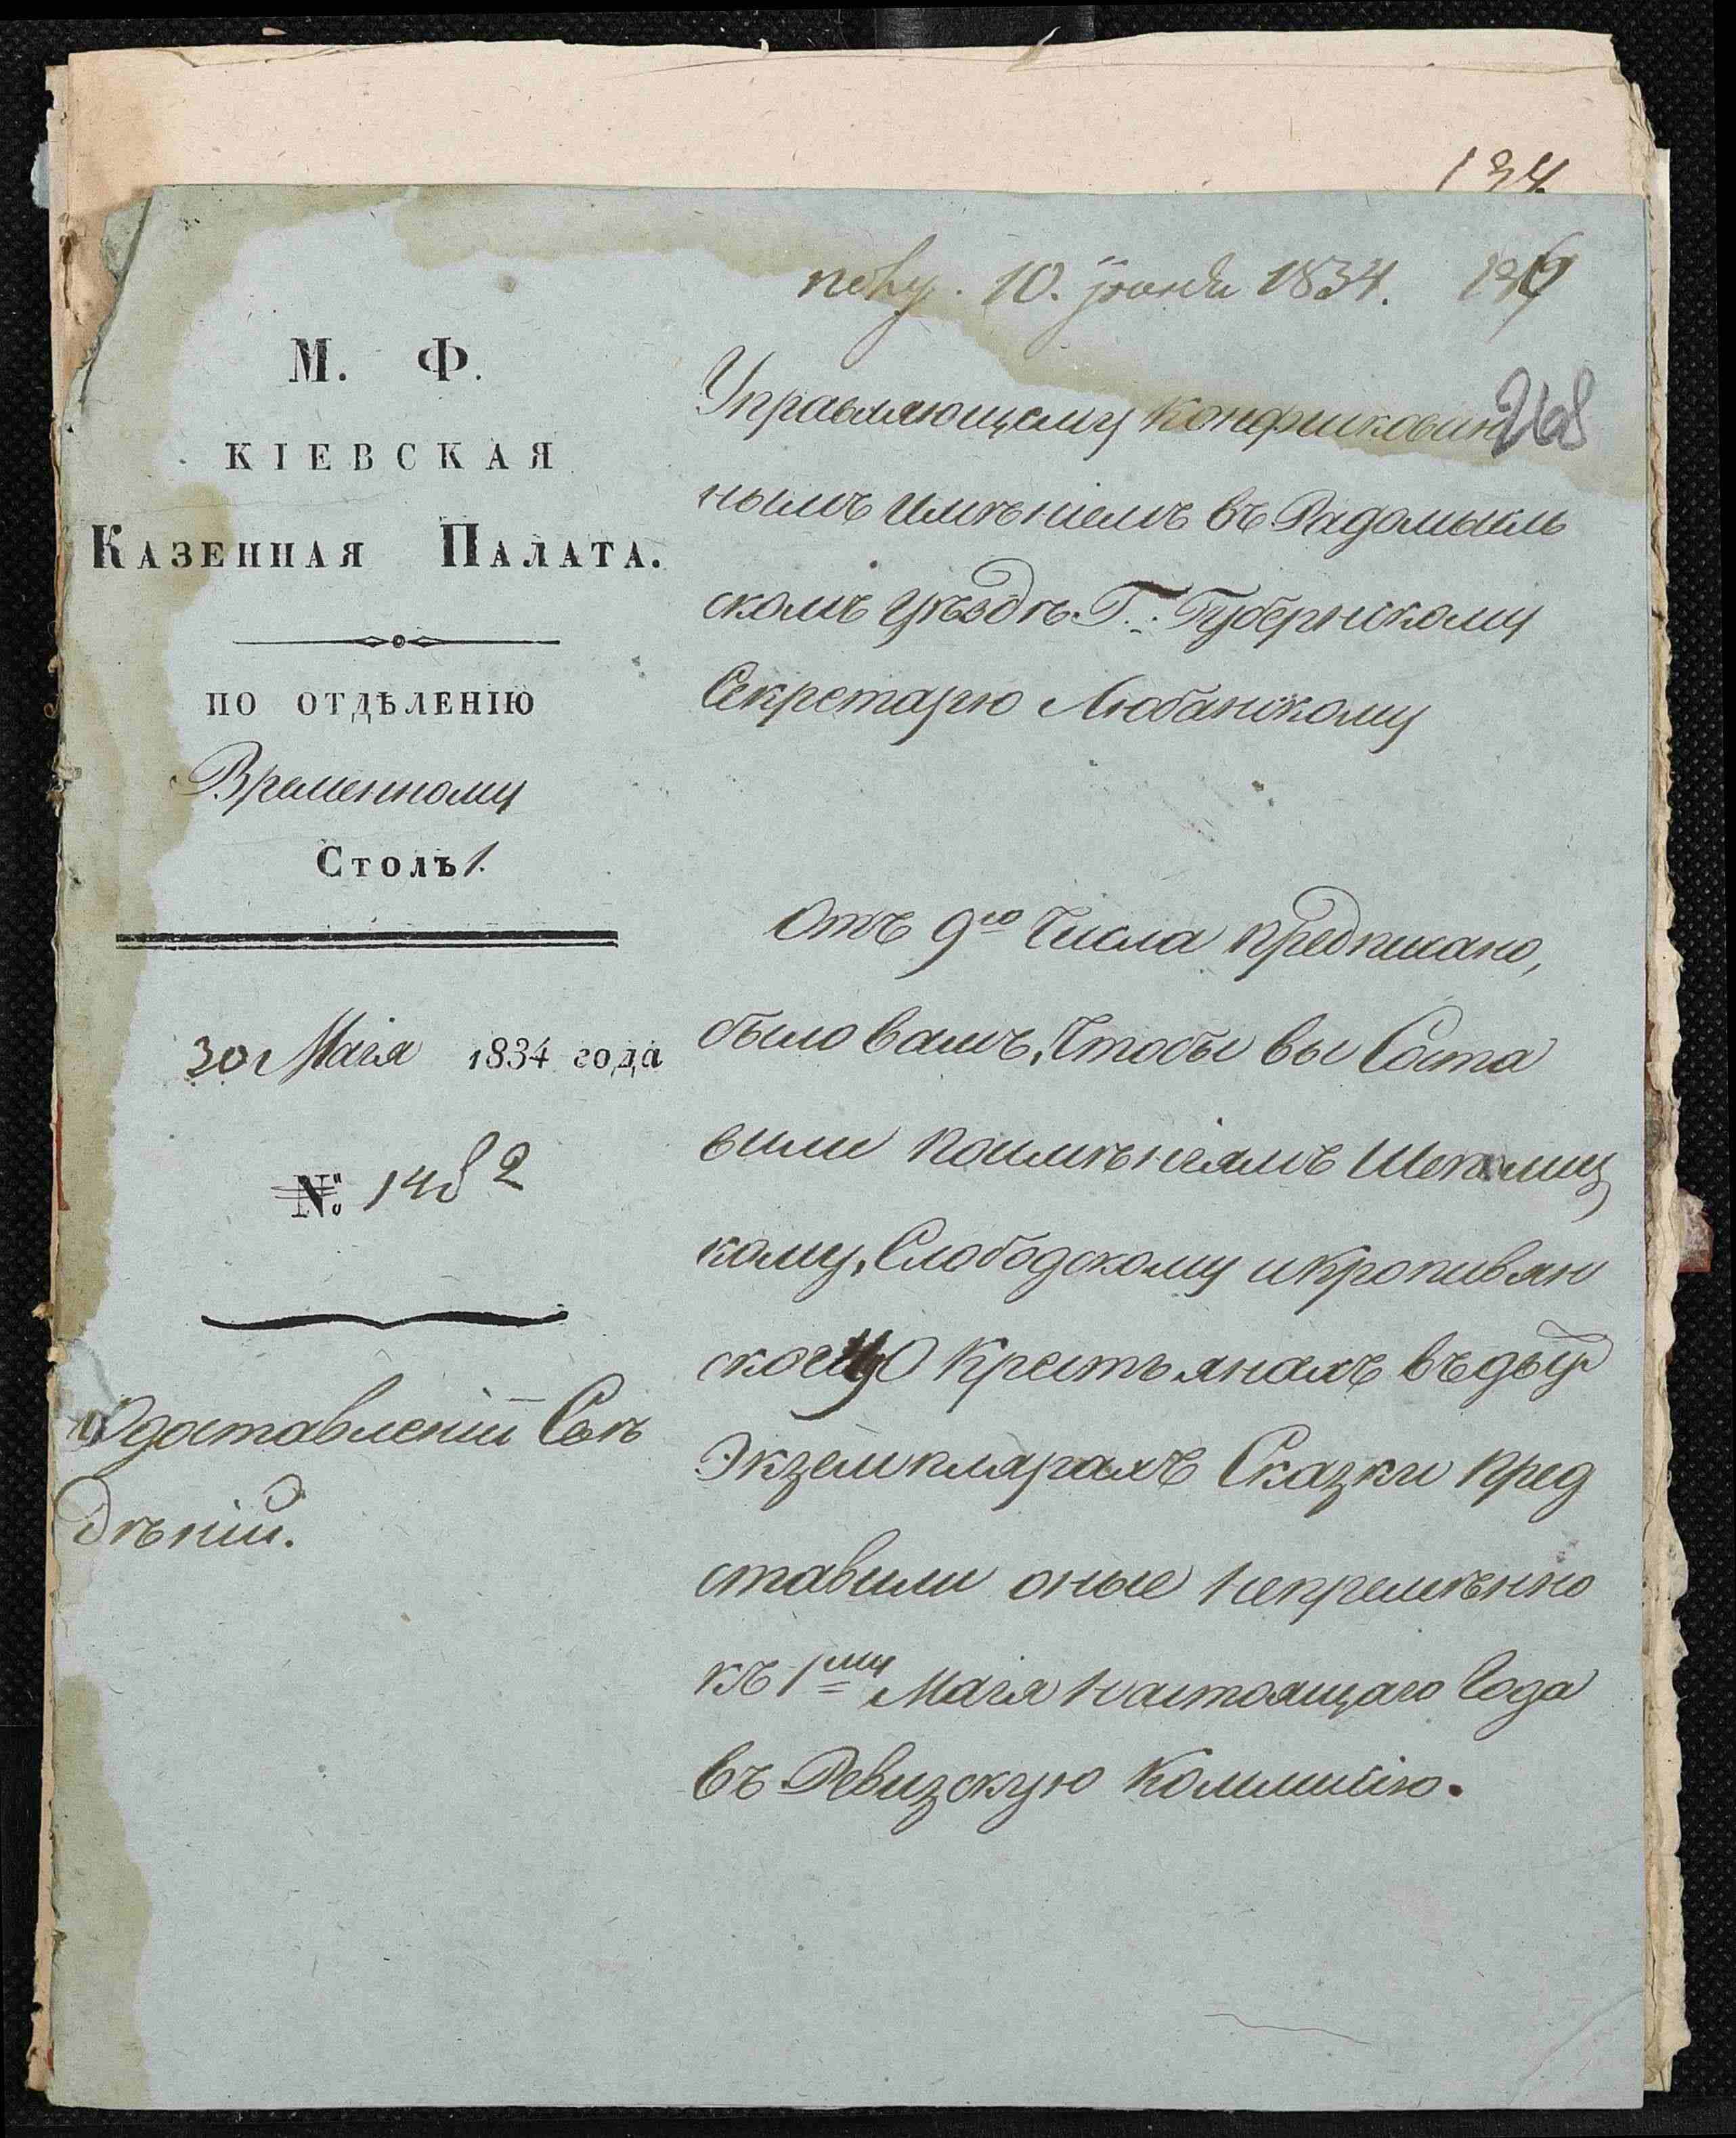 134
10. Іюня 1834.
268
М. Ф.
КІЕВСКАЯ
КАЗЕННАЯ ПАЛАТА.
ПО ОТДѢЛЕНІЮ
Временному
Столъ 1.
30 Маія 1834 года
№ 1482
О доставленіи Свѣ
дѣній.
Управляющему Конфискован
нымъ имѣніемъ въ Радомысль
скомъ уѣздѣ Г. Губернскому
Секретарю Любанскому
Отъ 9го Числа предписано,
было вамъ, Чтобы вы Соста
вили по имѣніямъ
кому, Слободскому и кропивян
О крестьянахъ въ двух
Экземплярахъ Сказки пред
ставили оные непремѣнно
къ 1му Маія настоящаго Года
въ Ревизскую Коммисію.